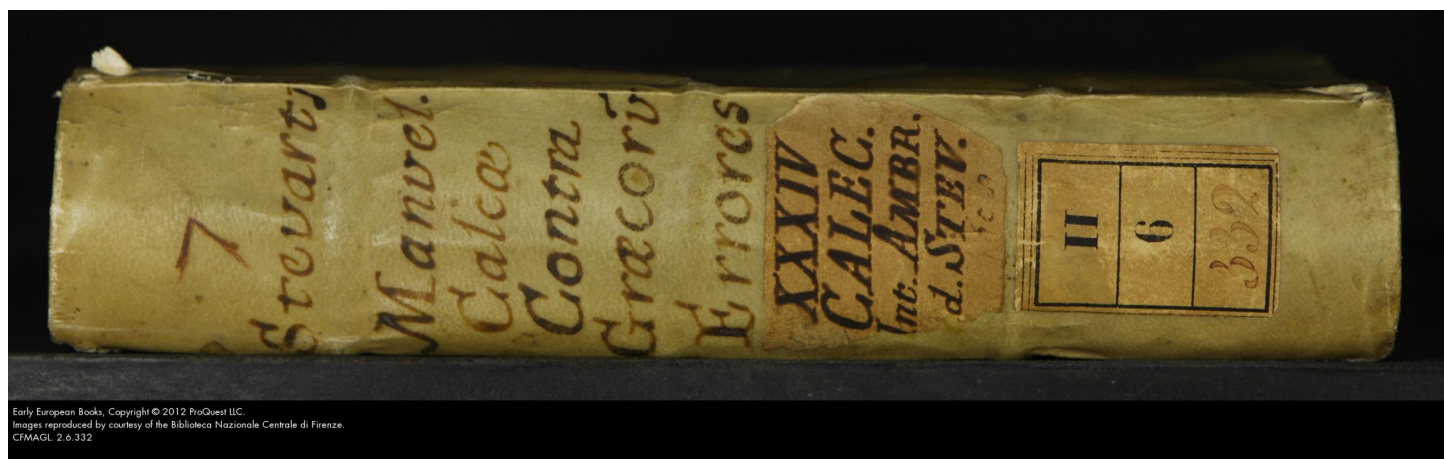 7
Stevartj
Manvel.
Calcæ
Contra
Græcorū
Errores
XXXIV
CALEC.
Int. AMBR.
d. STEV.
II
6
332
Early European Books, Copyright © 2012 ProQuest LLC.
Images reproduced by courtesy of the Biblioteca Nazionale Centrale di Firenze.
CFMAGL. 2.6.332